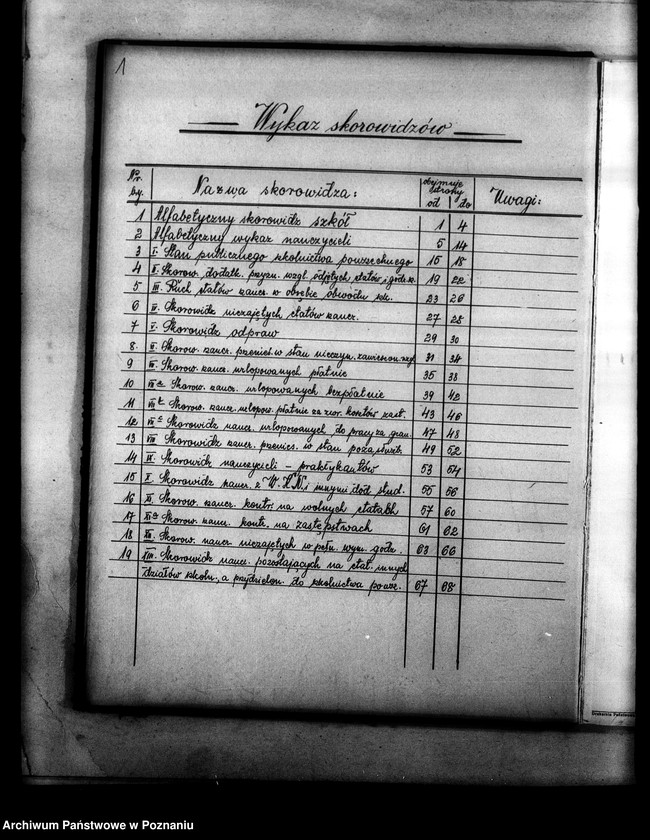 1
Wykaz skorowidzów
Nr. by. Nazwa skorowidza: obejmuje strony od do Uwagi:
1 Alfabetyczny skorowidz szkół 1 4
2 Alfabetyczny wykaz nauczycieli 5 14
3 I. Stan publicznego szkolnictwa powszechnego 15 18
4 II. Skorow. dodatk. przyzn. wzgl. odjętych etatów i godz. n. 19 22
5 III. Ruch etatów naucz. w obrębie obwodu szk. 23 26
6 IV. Skorowidz niezajętych etatów naucz. 27 28
7 V. Skorowidz odpraw 29 30
8. VI. Skorow. naucz. przenies. w stan nieczyn. zawieszon. 31 34
9 VII. Skorow. naucz. urlopowanych płatnie 35 38
10 VII a Skorow. naucz. urlopowanych bezpłatnie 39 42
11 VII b Skorow. naucz. urlopow. płatnie za zwr. kosztów zast. 43 46
12 VII c Skorowidz naucz. urlopowanych do pracy za gran. 47 48
13 VIII Skorowidz naucz. przenies. w stan pozasłużb. 49 52
14 IX. Skorowidz nauczycieli – praktykantów 53 54
15 X. Skorowidz naucz. z W.K.N. i innymi dod. stud. 55 56
16 XI. Skorow. naucz. kontr. na wolnych etatach 57 60
17 XI a Skorow. naucz. kontr. na zastępstwach 61 62
18 XII. Skorow. naucz. niezajętych w pełn. wym. godz. 63 66
19 XIII. Skorowidz naucz. pozostających na etat. innych
działów szkoln., a przydzielon. do szkolnictwa powsz. 67 68
Drukarnia Państwowa
Archiwum Państwowe w Poznaniu